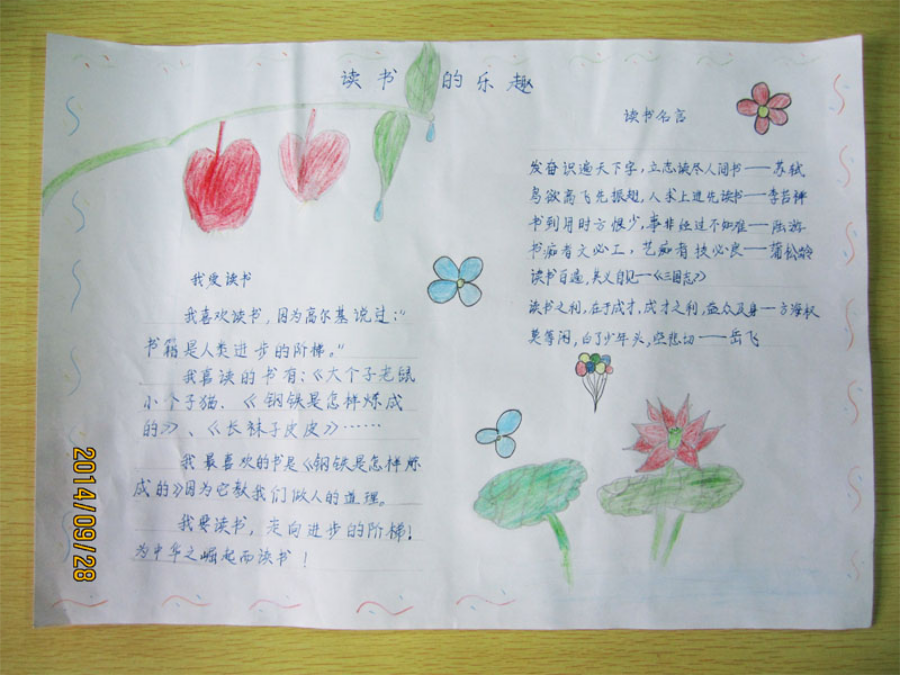 读书的乐趣
我爱读书
我喜欢读书，因为高尔基说过：“
书籍是人类进步的阶梯。”
我喜读的书有：《大个子老鼠
小个子猫、《钢铁是怎样炼成
的》、《长袜子皮皮》……
我最喜欢的书是《钢铁是怎样炼
成的》因为它教我们做人的道理。
我要读书，走向进步的阶梯！
为中华之崛起而读书！
读书名言
发奋识遍天下字，立志读尽人间书——苏轼
鸟欲高飞先振翅，人求上进先读书——李苦禅
书到用时方恨少，事非经过不知难——陆游
书痴者文必工，艺痴者技必良——蒲松龄
读书百遍，其义自见——《三国志》
读书之利，在于成才，成才之利，益众及身——方海权
莫等闲，白了少年头，空悲切——岳飞
2014/09/28